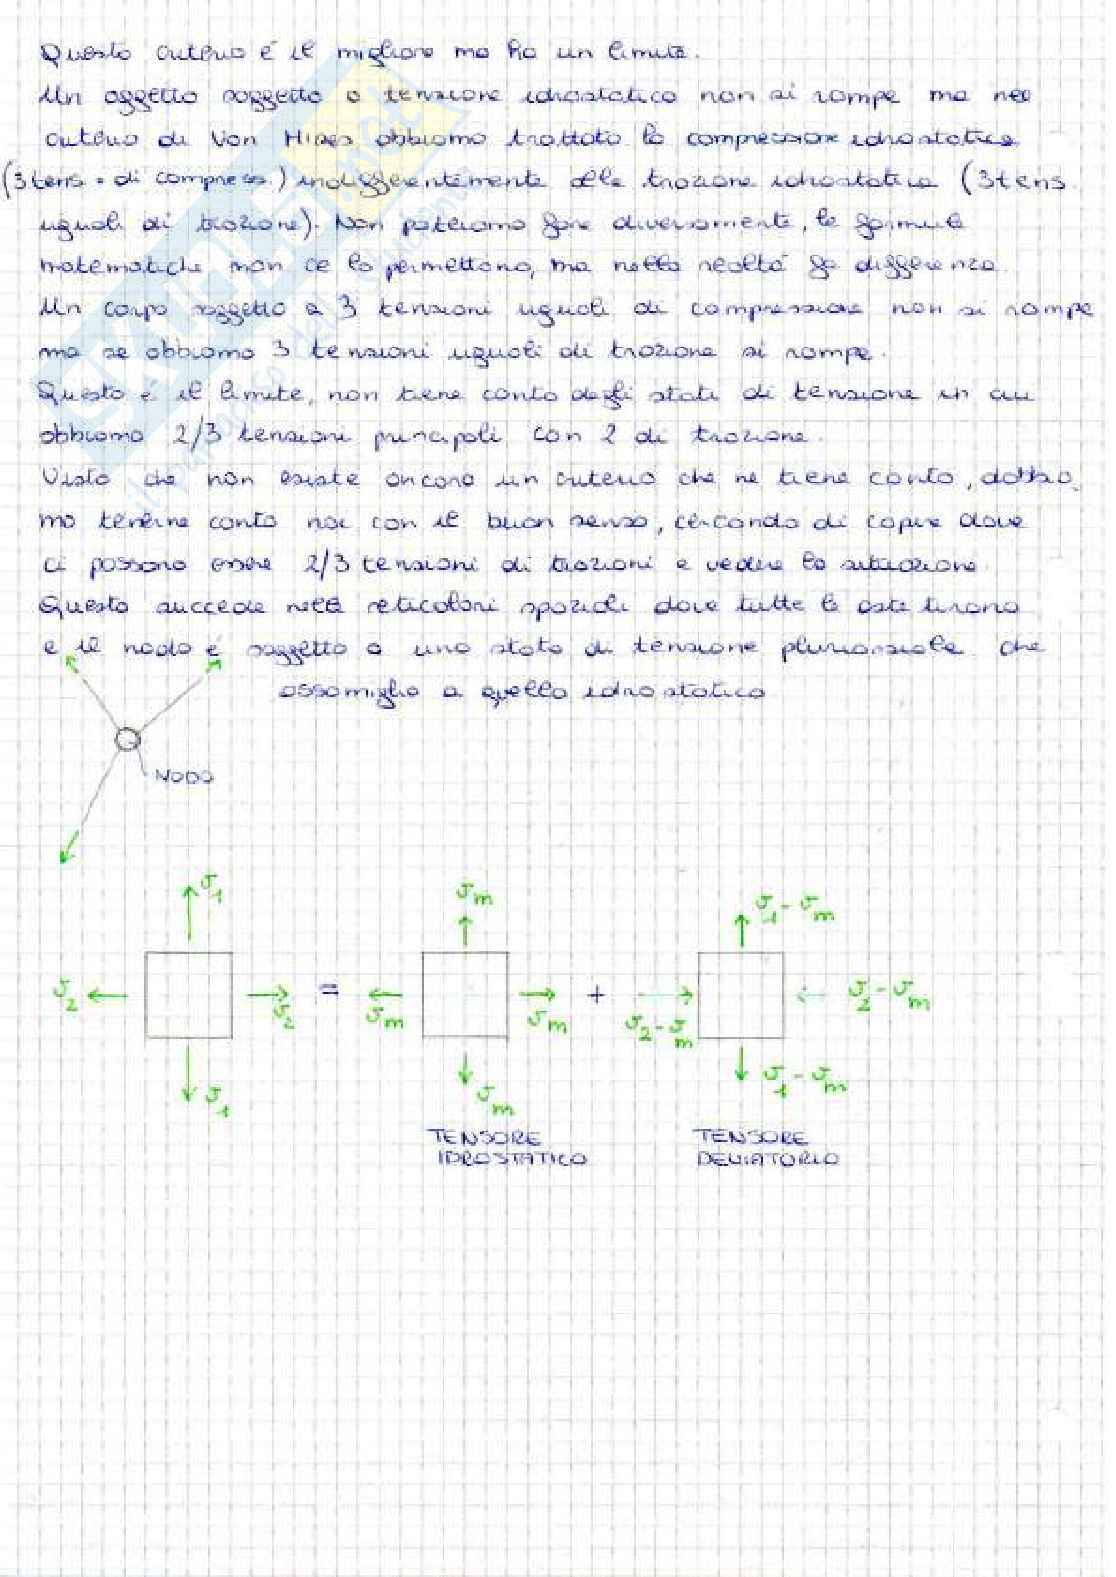 Questo criterio è il migliore ma ha un limite.
Un oggetto soggetto a tensione idrostatica non si rompe ma nel
criterio di Von Mises abbiamo trattato la compressione idrostatica
(3 tens = di compress.) indifferentemente alla trazione idrostatica (3 tens.
uguali di trazione). Non potevamo fare diversamente, le formule
matematiche non ce lo permettono, ma nella realtà fa differenza.
Un corpo soggetto a 3 tensioni uguali di compressione non si rompe
ma se abbiamo 3 tensioni uguali di trazione si rompe.
Questo è il limite, non tiene conto degli stati di tensione in cui
abbiamo 2/3 tensioni principali con 2 di trazione.
Visto che non esiste ancora un criterio che ne tiene conto, dobbia
mo tenerne conto noi con il buon senso, cercando di capire dove
ci possono essere 2/3 tensioni di trazioni e vedere la situazione.
Questo succede nelle reticolari spaziali dove tutte le aste tirano
e il nodo è soggetto a uno stato di tensione pluriassiale che
assomiglia a quello idrostatico
NODO
σ1
σm
σ1 - σm
σ2
σ2
=
σm
σm
+
σ2 - σm
σ2 - σm
σ1
σm
σ1 - σm
TENSORE
IDROSTATICO
TENSORE
DEVIATORIO